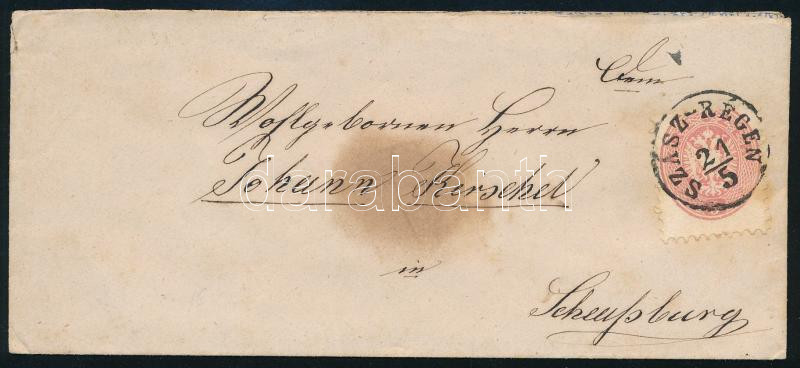 Dem
Wohlgebornen Herrn
Johann Kerschel
in
Scheußburg
SZÁSZ-RÉGEN
21/5
darabanth